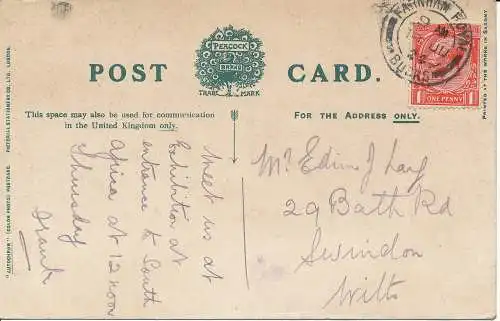 PEACOCK
BRAND
TRADE MARK
POST CARD.
This space may also be used for communication
in the United Kingdom only.
FOR THE ADDRESS ONLY.
FARNHAM ROYAL
BUCKS
ONE PENNY
Meet us at
Exhibition at
entrance to South
Africa at 12 noon
Thursday
Frank
Mr Edwin J Lang
29 Bath Rd
Swindon
Wilts
"AUTOCHROM" (COLOR PHOTO) POSTCARD. PICTORIAL STATIONERY CO., LTD., LONDON.
PRINTED AT THE WORKS IN SAXONY.